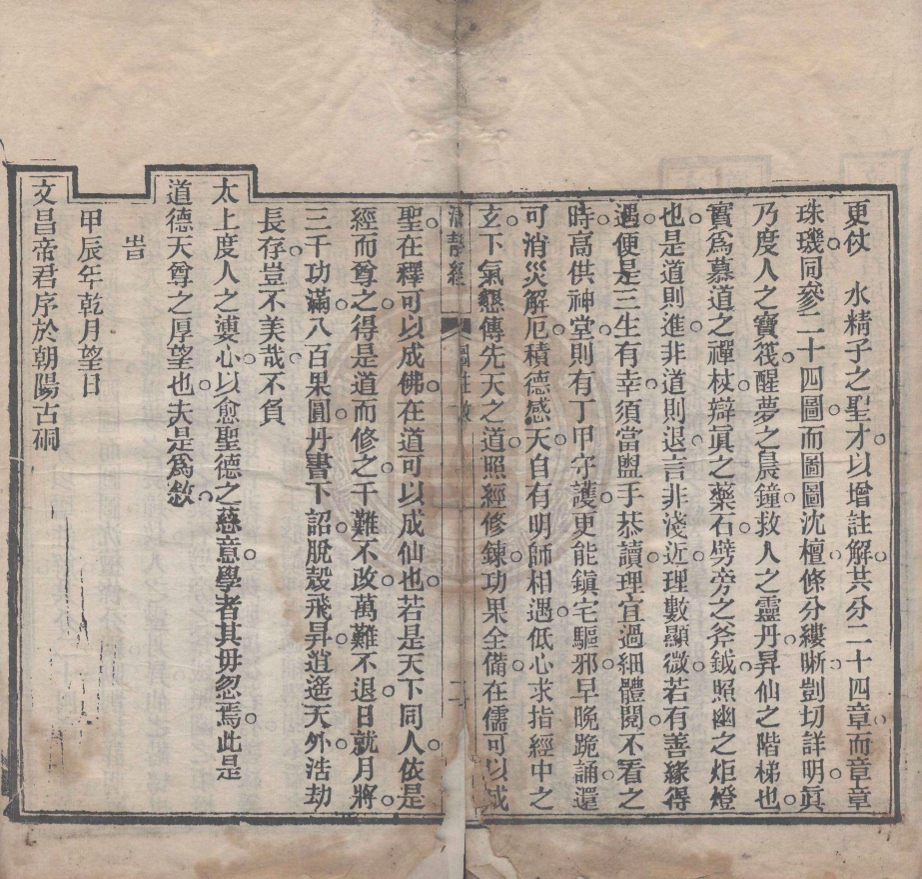 更仗　水精子之聖才。以增註解。共分二十四章。而章章
珠璣。同參二十四圖。而圖圖沈檀。條分縷晰。剴切詳明。眞
乃度人之寳筏。醒夢之晨鐘。救人之靈丹。昇仙之階梯也。
實爲慕道之禪杖。辯眞之藥石。劈旁之斧鉞。照幽之炬燈
也。是道則進。非道則退。言非淺近。理數顯微。若有善緣得
遇。便是三生有幸。須當盥手恭讀。理宜過細體閱。不看之
時。高供神堂。則有丁甲守護。更能鎮宅驅邪。早晚跪誦。還
可消災解厄。積德感天。自有明師相遇。低心求指經中之
玄。下氣懇傳先天之道。照經修鍊。功果全備。在儒可以成
清靜經
二
聖。在釋可以成佛。在道可以成仙也。若是天下同人。依是
經而尊之。得是道而修之。千難不改。萬難不退。日就月將。
三千功滿。八百果圓。丹書下詔。脫殼飛昇。逍遙天外。浩劫
長存。豈不美哉。不負
太上度人之婆心。以愈聖德之慈意。學者其毋忽焉。此是
道德天尊之厚望也。夫是爲敘。
旹
甲辰年乾月望日
文昌帝君序於朝陽古硐